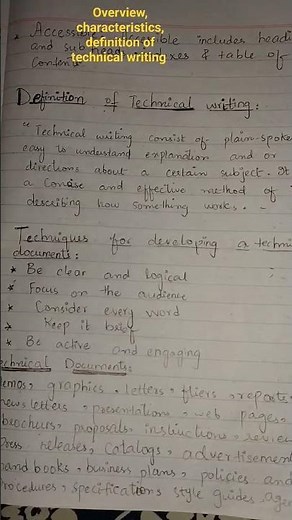 Overview,
characteristics,
definition of
technical writing
Accessible includes headi
and sub & table of
content
Definition of Technical writing:
" Technical writing consist of plain-spoke
easy to understand explanation and or
directions about a certain subject. It
a concise and effective method of
describing how something works. -
Techniques for developing a techni
documents:
* Be clear and logical
* Focus on the audience
* Consider every word
* Keep it brief
* Be active and engaging
echnical Documents:
emos, graphics, letters, fliers, reports
news letters, presentations, web pages,
brochers, proposals, instructions, review
Press releases, catalogs, advertisement
hand books, business plans, policies and
rocedures, specifications style guides, age